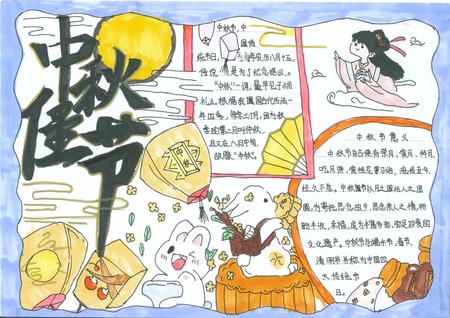 中秋佳节
中秋节,中
国传
统节日,为每年农历八月十五,
传说是为了纪念嫦娥。
"中秋"一词,最早见于《周
礼》。根据我国古代历法一
年四季,每季三个月,因为秋
季的第二月叫仲秋,
且又在八月中旬,
故称"中秋"。
中秋
中秋节意义
中秋节自古便有祭月、赏月、拜月、
吃月饼、赏桂花等习俗,流传至今,
经久不息。中秋国节以月之圆兆人之团
圆,为寄托思念故乡,思念亲人之情,祈
盼丰收、幸福,成为丰富多彩、弥足珍贵的
文化遗产。中秋节与端午节、春节、
清明节并称为中国四
大传统节
日。